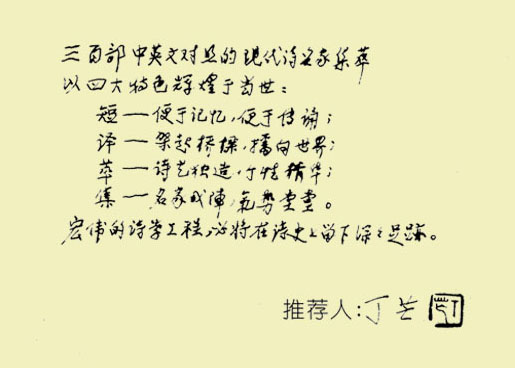 三百部中英文对照的现代诗名家集萃
以四大特色辉煌于当世：
短—便于记忆，便于传诵；
译—架起桥梁，播向世界；
萃—诗艺独造，个性精华；
集—名家成阵，气势堂堂。
宏伟的诗学工程，必将在诗史上留下深深足迹。
推荐人：丁芒